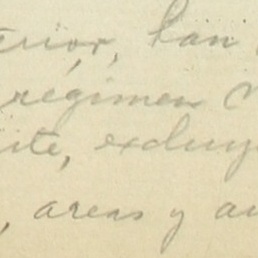 terior, han
régimen
ite, excluy
, areas y au